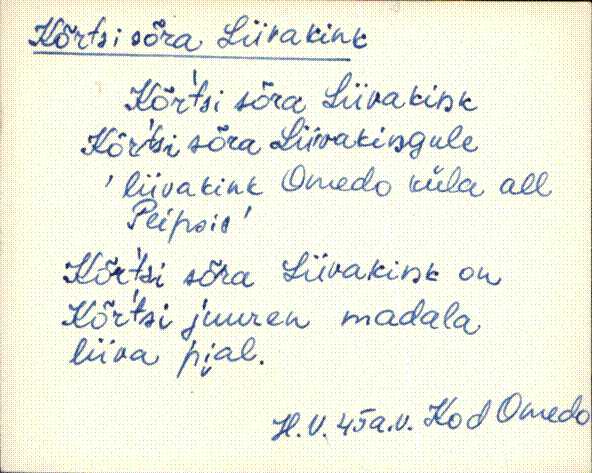 Kõrtsi sõra Liivakink
Kõŕtsi sõra Liivakiŋk
Kõŕtsi sõra Liivakiŋgule
'liivakink Omedo küla all
Peipsis'
Kõŕtsi sõra Liivakiŋk on
Kõŕtsi juuren madala
liiva pi̬al.
H.V. 45 a.v. Kod Omedo